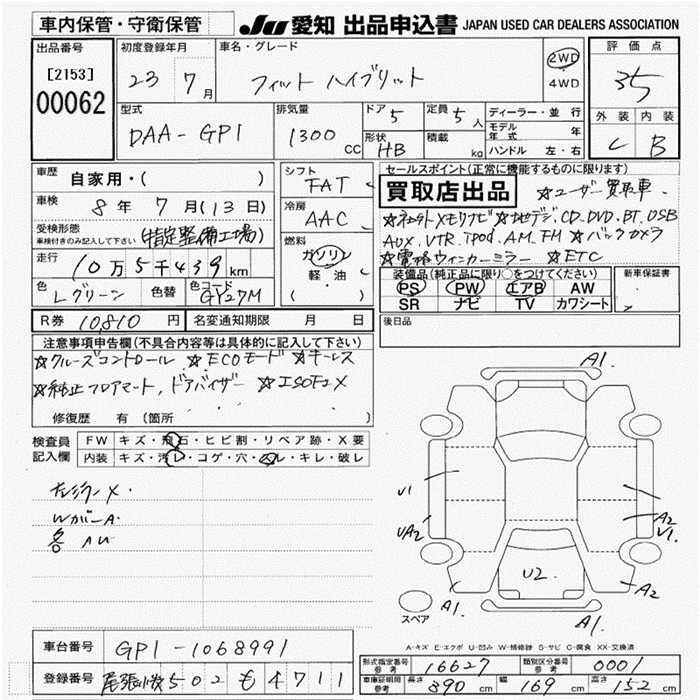 車内保管・守衛保管
JU 愛知 出品申込書 JAPAN USED CAR DEALERS ASSOCIATION
出品番号
[2153]
00062
初度登録年月
23 7月
車名・グレード
フィット ハイブリット
2WD
4WD
評価点
35
外装 内装
C B
型式
DAA-GP1
排気量
1300 CC
ドア 5
形状 HB
定員 5人
積載 kg
ディーラー・並行
モデル年式 年
ハンドル 左・右
車歴
自家用・( )
車検
8年 7月(13日)
受検形態
車検付きのみ記入して下さい
(指定整備工場)
走行
10万5千439km
色
Lグリーン
色替
色コード
GY27M
シフト
FAT
冷房
AAC
燃料
ガソリン
軽油
( )
セールスポイント(正常に機能するものに限ります)
買取店出品 ☆ユーザー買取車
☆ネカットメモリナビ ☆地デジ.CD.DVD.BT.USB
AUX.VTR.ipod.AM.FM ☆バックカメラ
☆電格ウィンカーミラー ☆ETC
装備品(純正品に限り○をつけてください)
PS PW エアB AW
SR ナビ TV カワシート
新車保証書
R券 10,810円
名変通知期限 月 日
後日品
注意事項申告欄(不具合内容等は具体的に記入して下さい)
☆クルーズコントロール ☆ECOモード ☆キーレス
☆純正フロアマット、ドアバイザー ☆ISOFIX
修復歴 有(箇所 )
検査員
記入欄
FW キズ・飛石・ヒビ割・リペア跡・X要
内装 キズ・汚レ・コゲ・穴・スレ・キレ・破レ
WガバーA
各 AU
A1.
U1
UA2
A2
U1.
U2.
A2
A1.
A1.
スペア
A-キズ E-エクボ U-凹み W-補修跡 S-サビ C-腐食 XX-交換済
車台番号
GP1-1068991
登録番号
尾張小牧502も4711
形式指定番号
参考
16627
類別区分番号
参考
0001
車庫証明用
参考
長さ 390 cm
幅 169 cm
高さ 152 cm